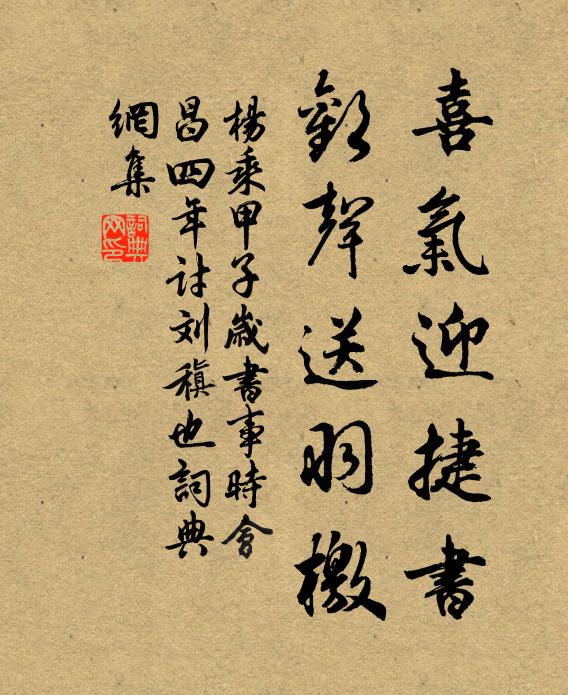 喜氣迎捷書
歡聲送羽檄
楊乘甲子歲書事時會
昌四年討刘稹也詞典
網集
詞典
网印